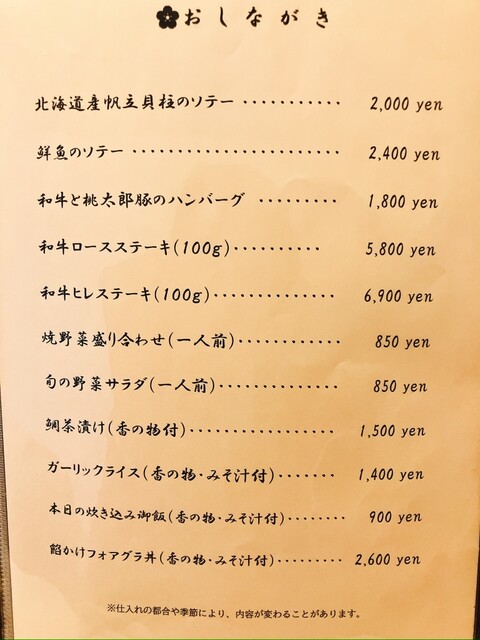 おしながき
北海道産帆立貝柱のソテー ･･･････････ 2,000 yen
鮮魚のソテー ･･･････････････････････ 2,400 yen
和牛と桃太郎豚のハンバーグ ･････････ 1,800 yen
和牛ロースステーキ(100g)･･････････ 5,800 yen
和牛ヒレステーキ(100g)･･････････････ 6,900 yen
焼野菜盛り合わせ(一人前)････････････ 850 yen
旬の野菜サラダ(一人前)･･････････････ 850 yen
鯛茶漬け(香の物付)･････････････････ 1,500 yen
ガーリックライス(香の物･みそ汁付)･･･････ 1,400 yen
本日の炊き込み御飯(香の物･みそ汁付)･････････ 900 yen
餡かけフォアグラ丼(香の物･みそ汁付)･････････ 2,600 yen
※仕入れの都合や季節により、内容が変わることがあります。